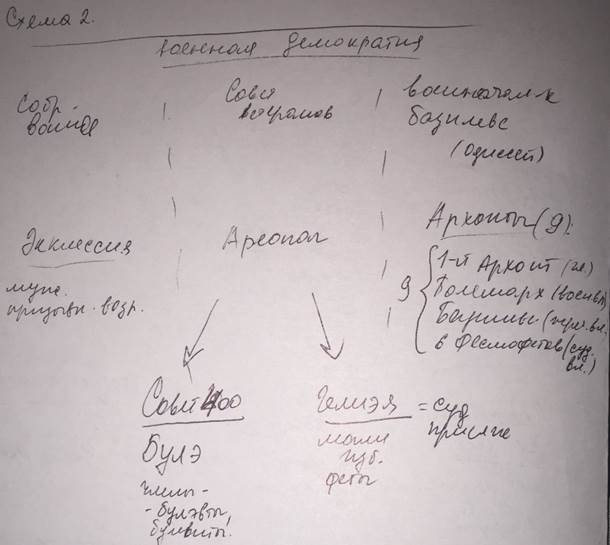 Схема 2.
военная демократия
Собр-
воинов
Совет
ветеранов
военачальн.
базилевс
(одиссей)
Экклессия
мужч.
призывн. возр.
Ареопаг
Архонты (9):
9
1-й Архонт (гл.)
Полемарх (воен.вл)
Базилевс (жреч. вл.)
6 Фесмофетов (суд.
вл.)
Совет 400
Булэ
члены -
- булэвты,
булевиты.
Гелиэя
= суд
присяжн
могли
изб.
феты